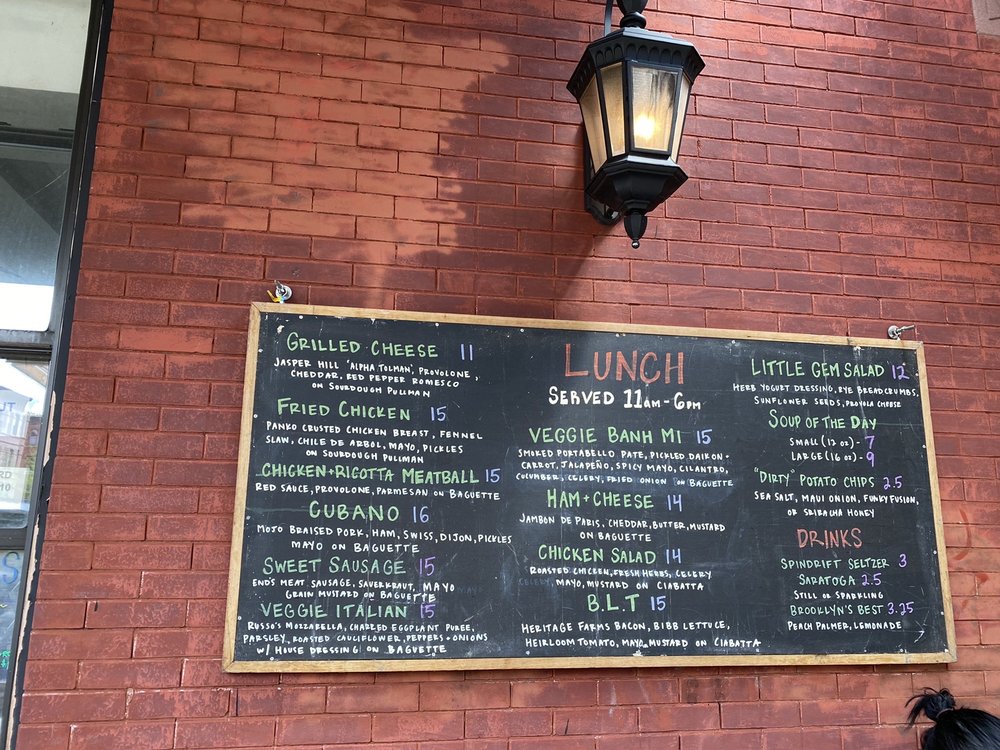 GRILLED CHEESE 11
JASPER HILL "ALPHA TOLMAN", PROVOLONE,
CHEDDAR, RED PEPPER ROMESCO
ON SOURDOUGH PULLMAN
FRIED CHICKEN 15
PANKO CRUSTED CHICKEN BREAST, FENNEL
SLAW, CHILE DE ARBOL, MAYO, PICKLES
ON SOURDOUGH PULLMAN
CHICKEN + RICOTTA MEATBALL 15
RED SAUCE, PROVOLONE, PARMESAN ON BAGUETTE
CUBANO 16
MOJO BRAISED PORK, HAM, SWISS, DIJON, PICKLES
MAYO ON BAGUETTE
SWEET SAUSAGE 15
END'S MEAT SAUSAGE, SAUERKRAUT, MAYO
GRAIN MUSTARD ON BAGUETTE
VEGGIE ITALIAN 15
RUSSO'S MOZZARELLA, CHARRED EGGPLANT PUREE,
PARSLEY, ROASTED CAULIFLOWER, PEPPERS + ONIONS
W/ HOUSE DRESSING ON BAGUETTE
LUNCH
SERVED 11AM - 6PM
VEGGIE BANH MI 15
SMOKED PORTABELLO PATE, PICKLED DAIKON +
CARROT, JALAPEÑO, SPICY MAYO, CILANTRO,
CUCUMBER, CELERY, FRIED ONION ON BAGUETTE
HAM + CHEESE 14
JAMBON DE PARIS, CHEDDAR, BUTTER, MUSTARD
ON BAGUETTE
CHICKEN SALAD 14
ROASTED CHICKEN, FRESH HERBS, CELERY
CELERY, MAYO, MUSTARD ON CIABATTA
B.L.T 15
HERITAGE FARMS BACON, BIBB LETTUCE,
HEIRLOOM TOMATO, MAYO, MUSTARD ON CIABATTA
LITTLE GEM SALAD 12
HERB YOGURT DRESSING, RYE BREADCRUMBS,
SUNFLOWER SEEDS, PROVOLA CHEESE
SOUP OF THE DAY
SMALL (12 OZ) - 7
LARGE (16 OZ) - 9
"DIRTY" POTATO CHIPS 2.5
SEA SALT, MAUI ONION, FUNKY FUSION,
OR SRIRACHA HONEY
DRINKS
SPINDRIFT SELTZER 3
SARATOGA 2.5
STILL OR SPARKLING
BROOKLYN'S BEST 3.25
PEACH PALMER, LEMONADE